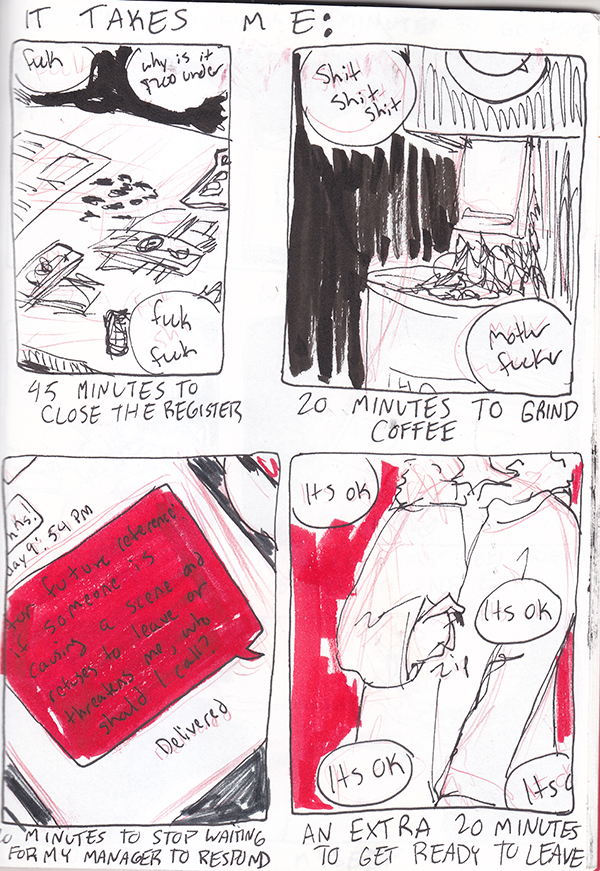 IT TAKES ME:
fuck
why is it
$200 under
fuck
fuck
45 MINUTES TO
CLOSE THE REGISTER
Shit
shit
shit
mother
fucker
20 MINUTES TO GRIND
COFFEE
9:54 PM
for future reference
if someone is
causing a scene and
refuses to leave or
threatens me, who
should I call?
Delivered
MINUTES TO STOP WAITING
FOR MY MANAGER TO RESPOND
Its ok
Its ok
zip
Its OK
Its
AN EXTRA 20 MINUTES
TO GET READY TO LEAVE